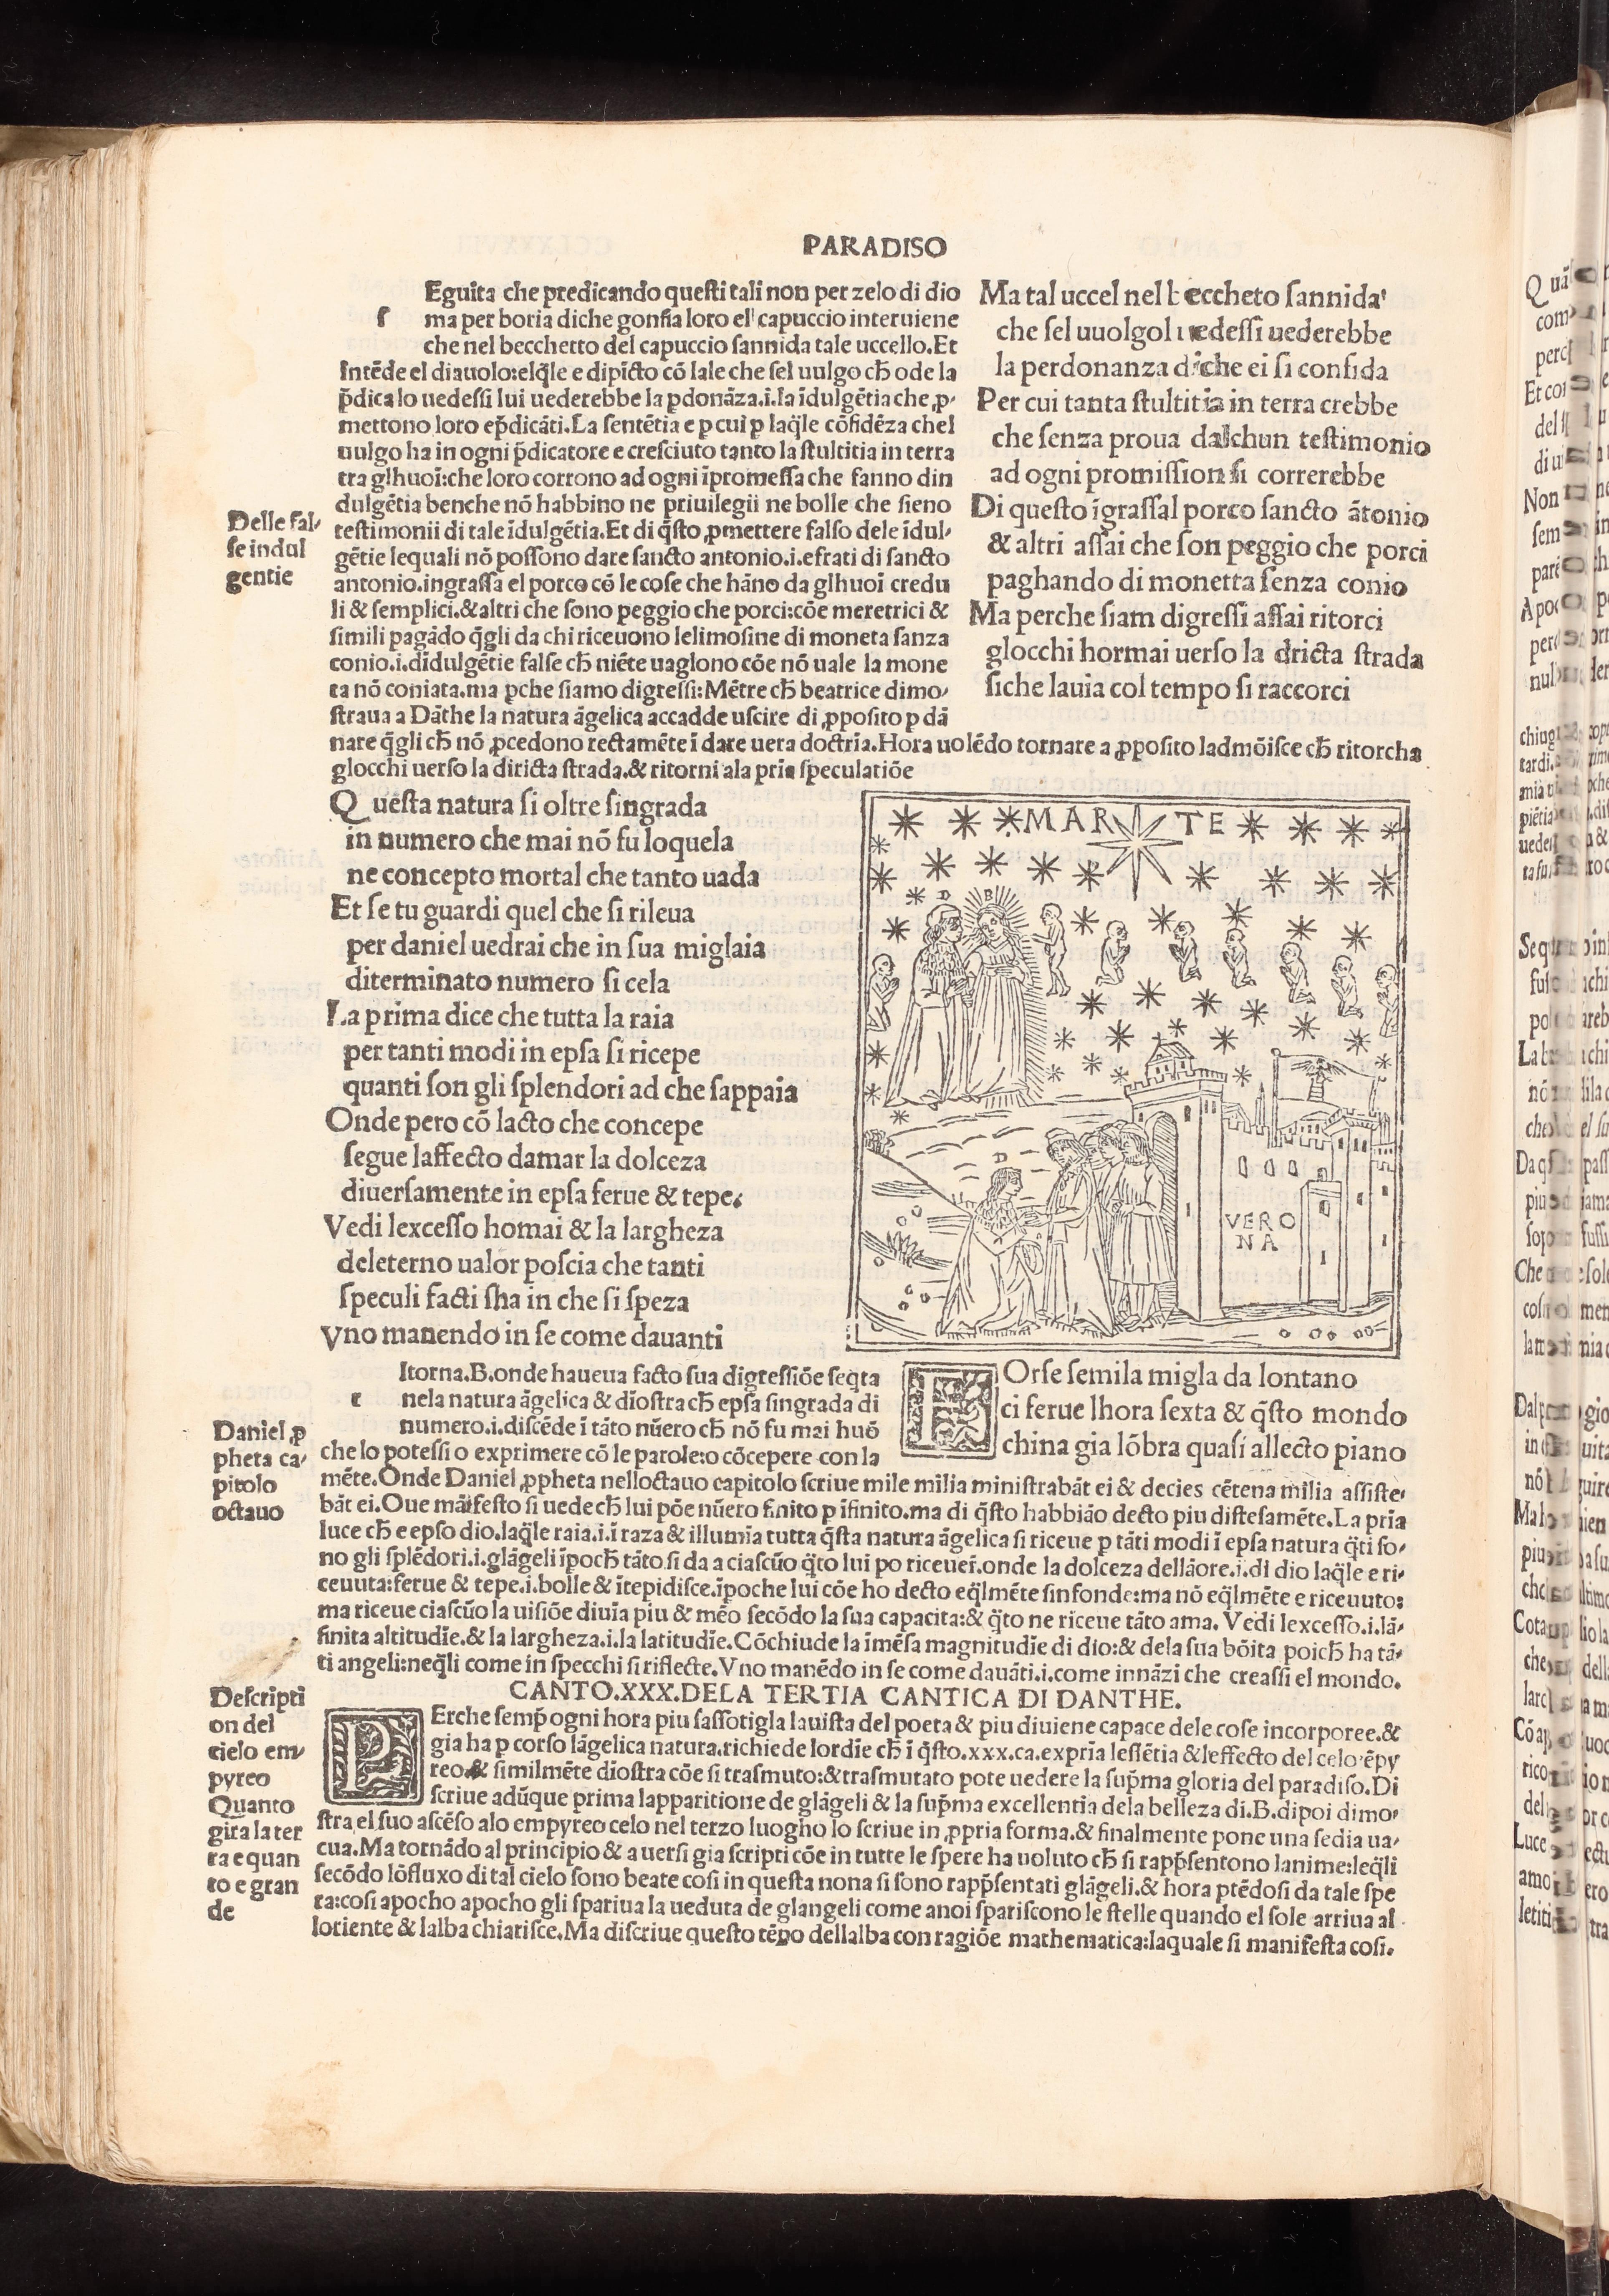 PARADISO
ſ Eguita che predicando queſti tali non per zelo di dio
ma per boria diche gonfia loro el capuccio interuiene
che nel becchetto del capuccio ſannida tale uccello.Et
intēde el diauolo:elq̄le e dipīcto cō lale che ſel uulgo ch̄ ode la
p̄dica lo uedeſſi lui uederebbe la ꝑdonāza.i.la īdulgētia che ꝓ-
mettono loro ep̄dicāti.La ſentētia e ꝑ cui ꝑ laq̄le cōfidēza chel
uulgo ha in ogni p̄dicatore e creſciuto tanto la ſtultitia in terra
tra glhuoī:che loro corrono ad ogni īpromeſſa che fanno din
dulgētia benche nō habbino ne priuilegii ne bolle che ſieno
teſtimonii di tale īdulgētia.Et di q̄ſto ꝓmettere falſo dele īdul-
gētie lequali nō poſſono dare ſancto antonio.i.efrati di ſancto
antonio.ingraſſa el porco cō le coſe che hāno da glhuoī credu
li & ſemplici.&altri che ſono peggio che porci:cōe meretrici &
ſimili pagādo q̄gli da chi riceuono lelimoſine di moneta ſanza
conio.i.dīdulgētie falſe ch̄ niēte uaglono cōe nō uale la mone
ta nō coniata.ma ꝑche ſiamo digreſſi:Mētre ch̄ beatrice dimo-
ſtraua a Dāthe la natura āgelica accadde uſcire di ꝓpoſito ꝑ dā
nare q̄gli ch̄ nō ꝓcedono rectamēte ī dare uera doctrīa.Hora uolēdo tornare a ꝓpoſito ladmōiſce ch̄ ritorcha
glocchi uerſo la diricta ſtrada.& ritorni ala pria ſpeculatiōe
Delle fal-
ſe indul
gentie
Ma tal uccel nel beccheto ſannida
che ſel uuolgol uedeſſi uederebbe
la perdonanza di che ei ſi confida
Per cui tanta ſtultitia in terra crebbe
che ſenza proua dalchun teſtimonio
ad ogni promiſſion ſi correrebbe
Di queſto īgraſſal porco ſancto ātonio
& altri aſſai che ſon peggio che porci
paghando di monetta ſenza conio
Ma perche ſiam digreſſi aſſai ritorci
glocchi hormai uerſo la dricta ſtrada
ſiche lauia col tempo ſi raccorci
Queſta natura ſi oltre ſingrada
in numero che mai nō fu loquela
ne concepto mortal che tanto uada
Et ſe tu guardi quel che ſi rileua
per daniel uedrai che in ſua miglaia
diterminato numero ſi cela
La prima dice che tutta la raia
per tanti modi in epſa ſi ricepe
quanti ſon gli ſplendori ad che ſappaia
Onde pero cō lacto che concepe
ſegue laffecto damar la dolceza
diuerſamente in epſa ferue & tepe.
Vedi lexceſſo homai & la largheza
deleterno ualor poſcia che tanti
ſpeculi facti ſha in che ſi ſpeza
Vno manendo in ſe come dauanti
MAR TE
D B
D
VERO
NA
r Itorna.B.onde haueua facto ſua digreſſiōe ſeq̄ta
nela natura āgelica & dīoſtra ch̄ epſa ſingrada di
numero.i.diſcēde ī tāto nūero ch̄ nō fu mai huō
che lo poteſſi o exprimere cō le parole:o cōcepere con la
Daniel ꝓ
pheta ca-
pitolo
octauo
FOrſe ſemila migla da lontano
ci ferue lhora ſexta & q̄ſto mondo
china gia lōbra quaſi allecto piano
mēte.Onde Daniel ꝓpheta nelloctauo capitolo ſcriue mile milia miniſtrabāt ei & decies cētena milia aſſiſte-
bāt ei.Oue māifeſto ſi uede ch̄ lui pōe nūero finito ꝑ īfinito.ma di q̄ſto habbiāo decto piu diſteſamēte.La prīa
luce ch̄ e epſo dio.laq̄le raia.i.ī raza & illumīa tutta q̄ſta natura āgelica ſi riceue ꝑ tāti modi ī epſa natura q̄ti ſo-
no gli ſplēdori.i.glāgeli īpoch̄ tāto ſi da a ciaſcūo q̄to lui po riceueī.onde la dolceza dellāore.i.di dio laq̄le e ri-
ceuuta:ferue & tepe.i.bolle & ītepidiſce.īpoche lui cōe ho decto eq̄lmēte ſinfonde:ma nō eq̄lmēte e riceuuto:
ma riceue ciaſcūo la uiſiōe diuīa piu & mēo ſecōdo la ſua capacita:& q̄to ne riceue tāto ama. Vedi lexceſſo.i.lā-
finita altitudīe.& la largheza.i.la latitudīe.Cōchiude la īmēſa magnitudīe di dio:& dela ſua bōita poich̄ ha tā-
ti angeli:neq̄li come in ſpecchi ſi riflecte.Vno manēdo in ſe come dauāti.i.come innāzi che creaſſi el mondo.
CANTO.XXX.DELA TERTIA CANTICA DI DANTHE.
PErche ſemp̄ ogni hora piu ſaſſotigla lauiſta del poeta & piu diuiene capace dele coſe incorporee.&
gia ha ꝑ corſo lāgelica natura.richiede lordīe ch̄ ī q̄ſto.xxx.ca.exprīa leſſētia &leffecto del celo ēpy
reo.& ſimilmēte dīoſtra cōe ſi traſmuto:&traſmutato pote uedere la ſup̄ma gloria del paradiſo.Di
ſcriue adūque prima lapparitione de glāgeli & la ſup̄ma excellentia dela belleza di.B.dipoi dimo-
ſtra el ſuo aſcēſo alo empyreo celo nel terzo luogho lo ſcriue in ꝓpria forma.& finalmente pone una ſedia ua-
cua.Ma tornādo al principio & a uerſi gia ſcripti cōe in tutte le ſpere ha uoluto ch̄ ſi rapp̄ſentono lanime:leq̄li
ſecōdo lōfluxo di tal cielo ſono beate coſi in queſta nona ſi ſono rapp̄ſentati glāgeli.& hora ꝑtēdoſi da tale ſpe
ra:coſi apocho apocho gli ſpariua la ueduta de glangeli come anoi ſpariſcono le ſtelle quando el ſole arriua al
loriente & lalba chiariſce.Ma diſcriue queſto tēpo dellalba con ragiōe mathematica:laquale ſi manifeſta coſi.
Deſcripti
on del
cielo em-
pyreo
Quanto
gira la ter
ra e quan
to e gran
de